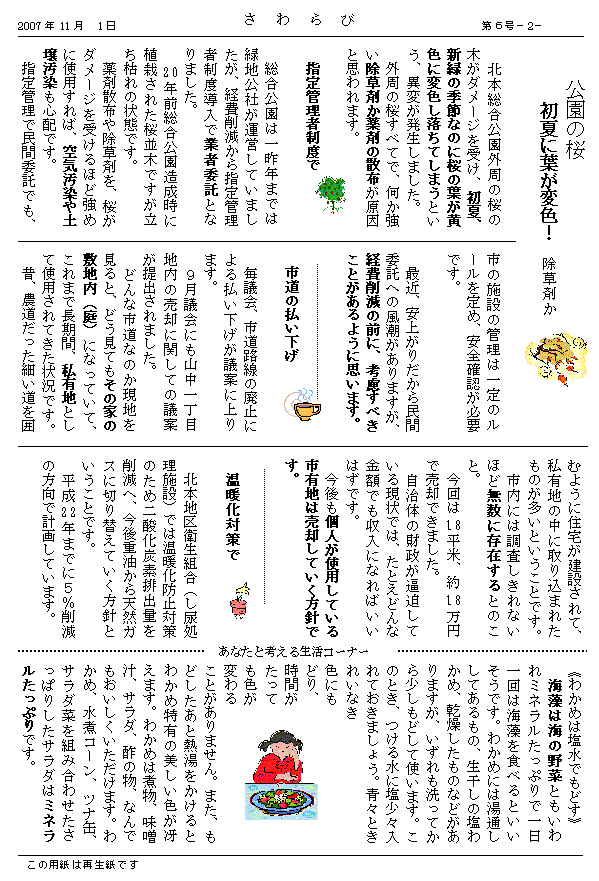 2007年11月 1日
さわらび
第6号-2-
公園の桜
初夏に葉が変色!
除草剤か
北本総合公園外周の桜の
木がダメージを受け、初夏、
新緑の季節なのに桜の葉が黄
色に変色し落ちてしまうとい
う、異変が発生しました。
外周の桜すべてで、何か強
い除草剤か薬剤の散布が原因
と思われます。
指定管理者制度で
総合公園は一昨年までは
緑地公社が運営していまし
たが、経費削減から指定管理
者制度導入で業者委託とな
りました。
20年前総合公園造成時に
植栽された桜並木ですが立
ち枯れの状態です。
薬剤散布や除草剤を、桜が
ダメージを受けるほど強め
に使用すれば、空気汚染や土
壌汚染も心配です。
指定管理で民間委託でも、
市の施設の管理は一定のル
ールを定め、安全確認が必要
です。
最近、安上がりだから民間
委託への風潮がありますが、
経費削減の前に、考慮すべき
ことがあるように思います。
市道の払い下げ
毎議会、市道路線の廃止に
よる払い下げが議案に上り
ます。
9月議会にも山中一丁目
地内の売却に関しての議案
が提出されました。
どんな市道なのか現地を
見ると、どう見てもその家の
敷地内(庭)になっていて、
これまで長期間、私有地とし
て使用されてきた状況です。
昔、農道だった細い道を囲
むように住宅が建設されて、
私有地の中に取り込まれた
ものが多いということです。
市内には調査しきれない
ほど無数に存在するとのこ
と。
今回は18平米、約18万円
で売却できました。
自治体の財政が逼迫して
いる現状では、たとえどんな
金額でも収入になればいい
はずです。
今後も個人が使用している
市有地は売却していく方針で
す。
温暖化対策で
北本地区衛生組合(し尿処
理施設)では温暖化防止対策
のため二酸化炭素排出量を
削減へ、今後重油から天然ガ
スに切り替えていく方針と
いうことです。
平成22年までに5%削減
の方向で計画しています。
あなたと考える生活コーナー
《わかめは塩水でもどす》
海藻は海の野菜ともいわ
れミネラルたっぷりで一日
一回は海藻を食べるといい
そうです。わかめには湯通し
してあるもの、生干しの塩わ
かめ、乾燥したものなどがあ
りますが、いずれも洗ってか
ら少しもどして使います。こ
のとき、つける水に塩少々入
れておきましょう。青々とき
れいなき
色にも
どり、
時間が
たって
も色が
変わる
ことがありません。また、も
どしたあと熱湯をかけると
わかめ特有の美しい色が冴
えます。わかめは煮物、味噌
汁、サラダ、酢の物、なんで
もおいしくいただけます。わ
かめ、水煮コーン、ツナ缶、
サラダ菜を組み合わせたさ
っぱりしたサラダはミネラ
ルたっぷりです。
この用紙は再生紙です